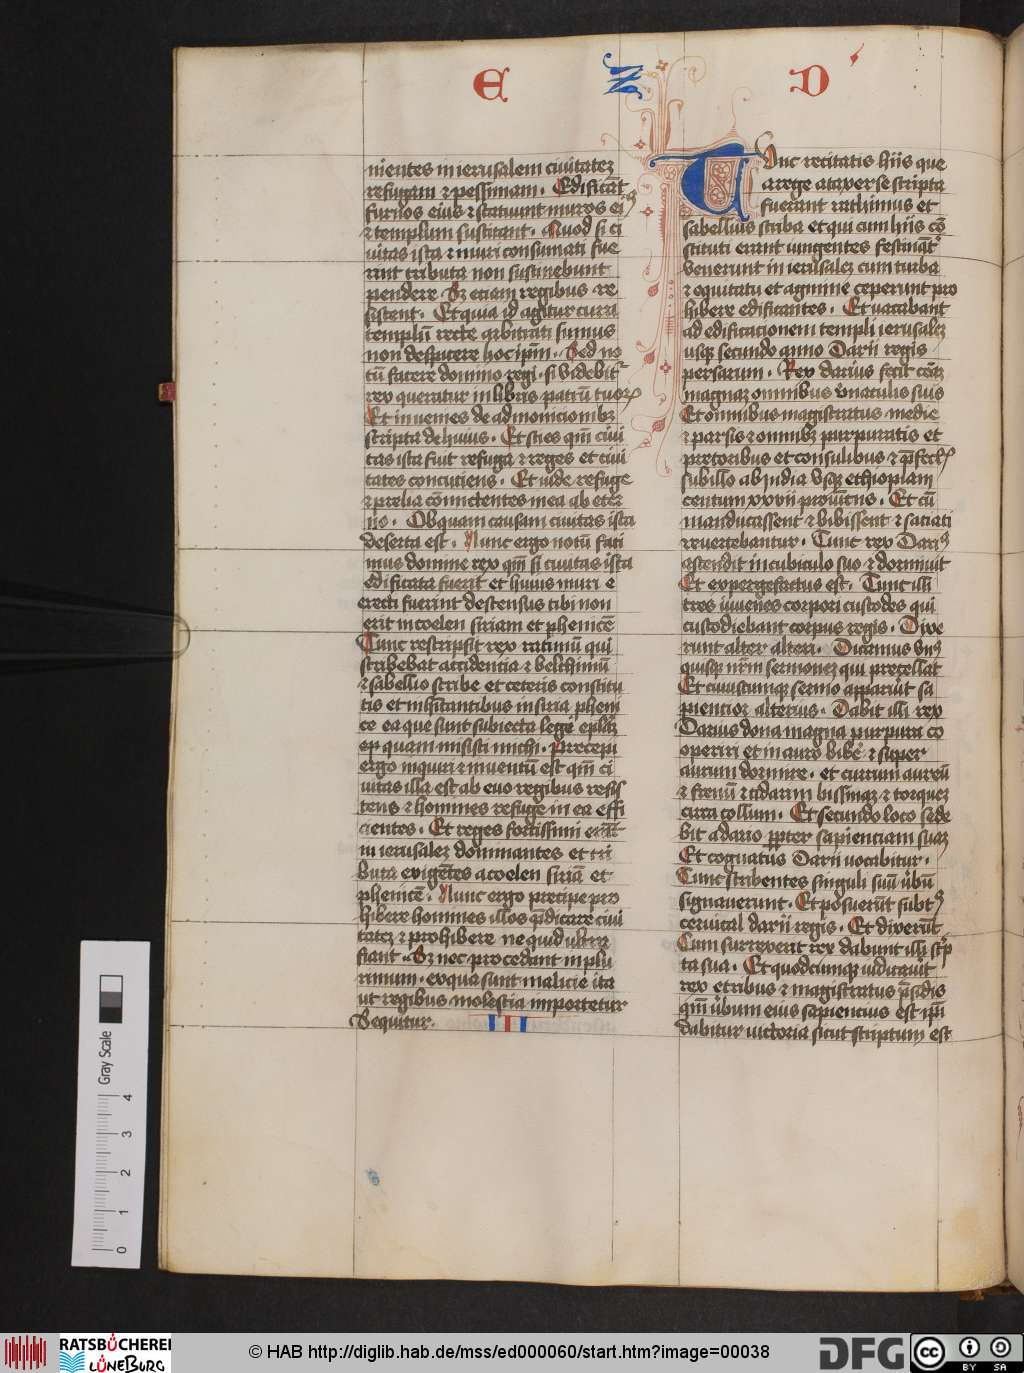 E Z D
nientes in ierusalem ciuitatez
refugam et pessimam. Edificāt
furnos eius et statuunt muros ei9
et templum suscitant. Quod si ci
uitas ista et muri consumati fue
rint tributa non sustinebunt
pendere Sz etiam regibus re
sistent. Et quia id agitur circa
templū recte arbitrati sumus
non despicere hoc ipm. Sed no
tū facere domino regi. si videbitr
rex queratur in libris patrū tuorz
Et inuenies de admonicionibz
scripta de huius. Et scies qm̄ ciui
tas ista fuit refuga et reges et ciui
tates concutiens. Et iude refuge
et prelia cōmictentes in ea ab eter
no. Ob quam causam ciuitas ista
deserta est. Nunc ergo notū faci
mus domine rex qm̄ si ciuitas ista
edificata fuerit et huius muri e
erecti fuerint descensus tibi non
erit in coelen siriam et phenicē
Tunc rescripsit rex ratimū qui
scribebat accidencia et belchimū
et sabellio scribe et ceteris constitu
tis et hĩtantibus in siria pheni
ce ea que sunt subiecta legi eplaz
ep quam misisti michi. Precepi
ergo inquiri et inuentū est qm̄ ci
uitas illa est ab euo regibus resis
tens et homines refuge in ea effi
cientes. Et reges fortissimi erāt
in ierusalez dominantes et tri
buta exigētes a coelen siriā et
phenicē. Nunc ergo precipe pro
hibere homines illos p̄dicare ciui
tatez et prohibere ne quid ultra
fiant. Sz nec procedant in plu
rimum. ex qua sunt malicie ita
ut regibus molestia importetur
Sequitur.
Tunc recitatis hiis que
a rege ataxerse scripta
fuerant rathimus et
sabellius scriba et qui cum hiis cō
stituti erant iungentes festināt
venerunt in ierusalez cum turba
et equitatu et agmine ceperunt pro
hibere edificantes. Et vacabant
ad edificacionem templi ierusalez
usqz secundo anno Darii regis
persarum. Rex darius fecit cenā
magnaz omnibus vnaculis suis
Et omnibus magistratus medie
et parsis et omnibz purpuratis et
pretoribus et consulibus et p̄fectz
subillo ab india vsqz ethiopiam
centum xxvii prouīcus. Et cū
manducassent et bibissent et saciati
reuertebantur. Tunc rex Dari9
ascendit in cubiculo suo et dormiuit
Et expergefactus est. Tunc illi
tres iuuenes corpori custodes qui
custodiebant corpus regis. Dixe
runt alter alteri. Dicamus vn9
quisqz nrm̄ sermonez qui precellat
Et cuiuscumqz sermo apparuit sa
piencior alterius. Dabit illi rex
Darius dona magna purpura co
operiri et in auro bibē et super
aurum dormire. et currum aureū
et frenū et cidarim bissinaz et torquez
circa collum. Et secundo loco sede
bit a dario ꝓpter sapienciam suaz
Et cognatus Darii vocabitur.
Tunc scribentes singuli suū ūbū
signauerunt. Et posuerūt subt9
ceruical darii regis. Et dixerūt
Cum surrexerit rex dabunt illi scrip
ta sua. Et quodcumqz iudicauit
rex e tribus et magistratus p̄sidis
qm̄ ūbum eius sapiencius est ipī
dabitur victoria sicut scriptum est
Gray Scale
0 1 2 3 4
RATSBÜCHEREI
LÜNEBURG
© HAB http://diglib.hab.de/mss/ed000060/start.htm?image=00038
DFG
cc BY SA